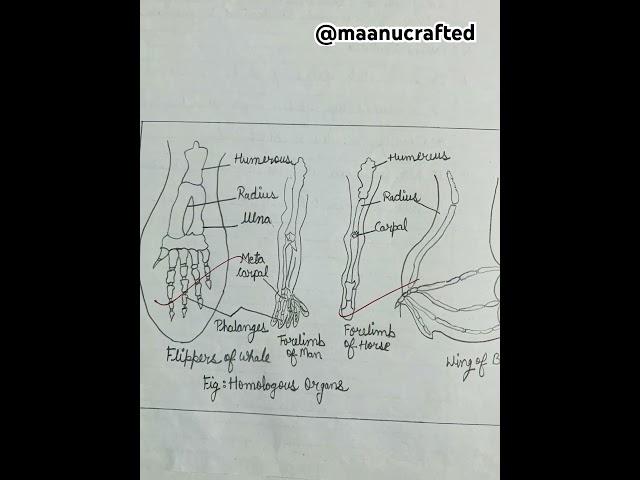 @maanucrafted
Humerous
Radius
Ulna
Meta
Carpal
Phalanges
Flippers of Whale
Forelimb
of Man
Humereus
Radius
Carpal
Forelimb
of Horse
Wing of B
Fig: Homologous Organs